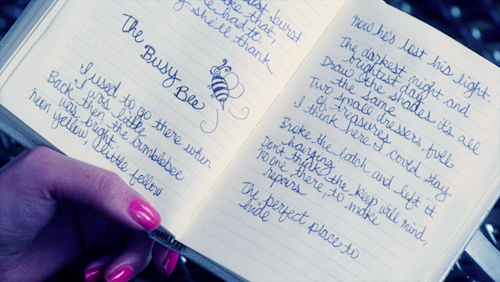 last burst
like that,
she'll thank
The Busy
Bee
I used to go there when
I was little
Back then the bumblebee
was bright
neon yellow, a little fellow
now he's lost his light.
The darkest night and
brightest day
Draw the shades it's all
the same
Two small dressers, full
of treasures
I think here I could stay
Broke the latch and left it
hanging
Don't think the keep will mind,
no one there, to make
repairs
The perfect place to
hide